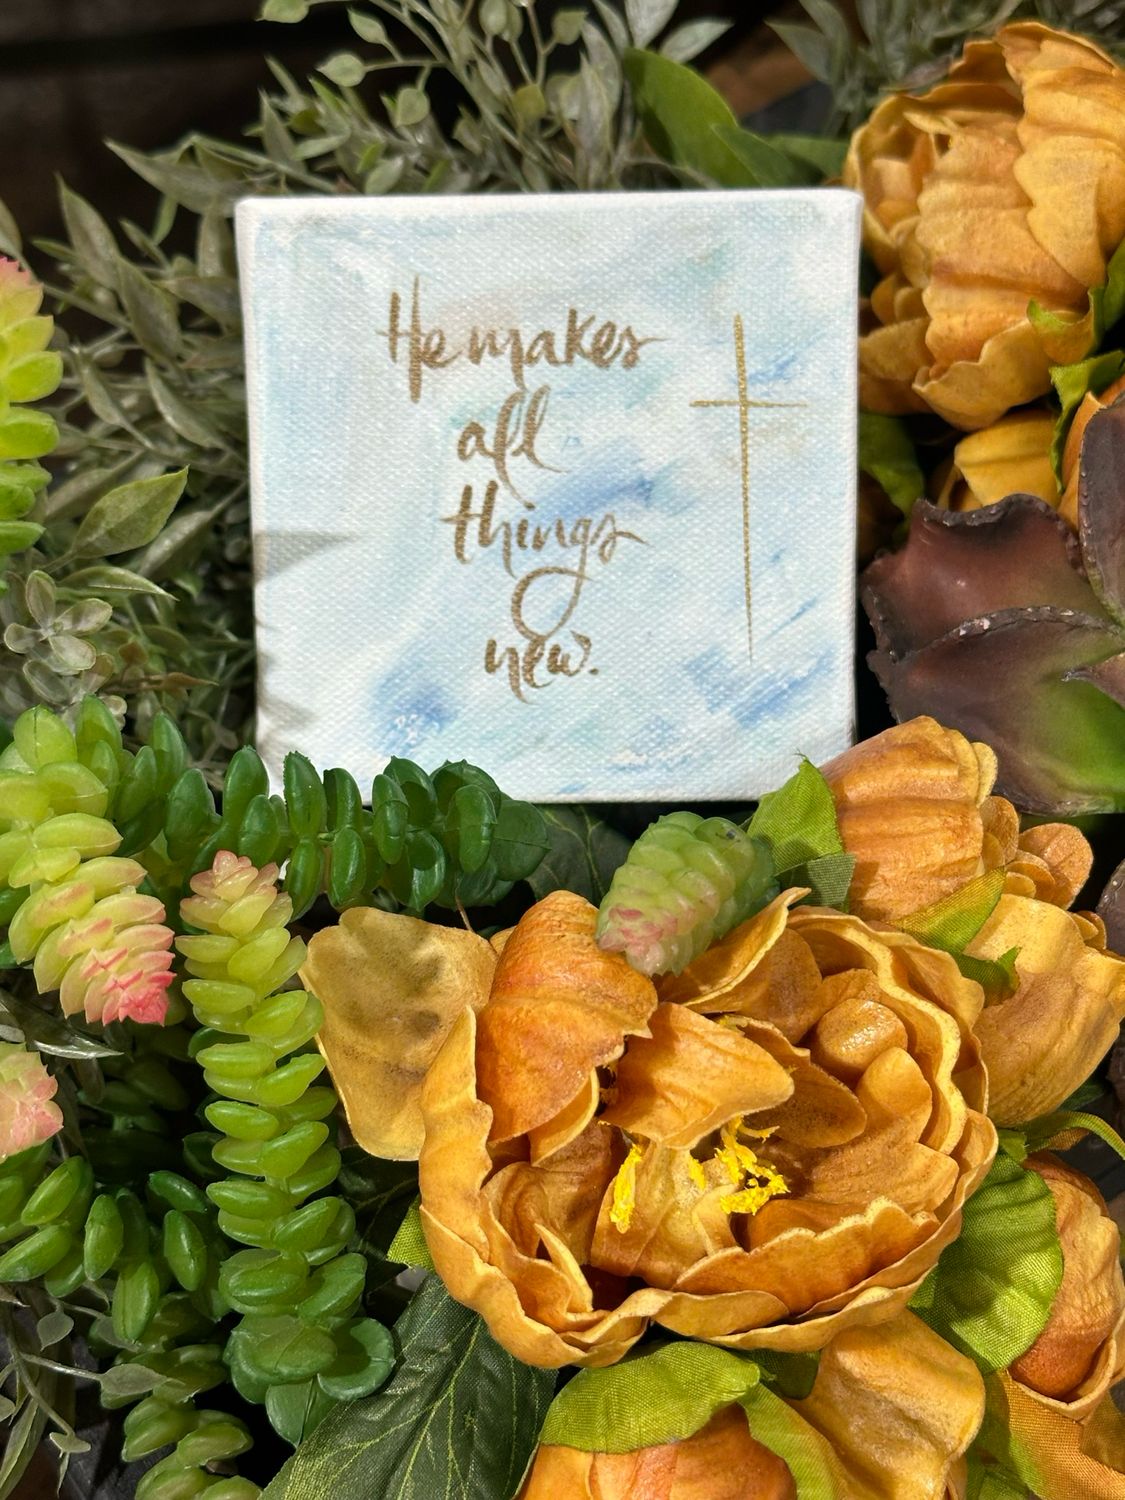 He makes
all
things
new.